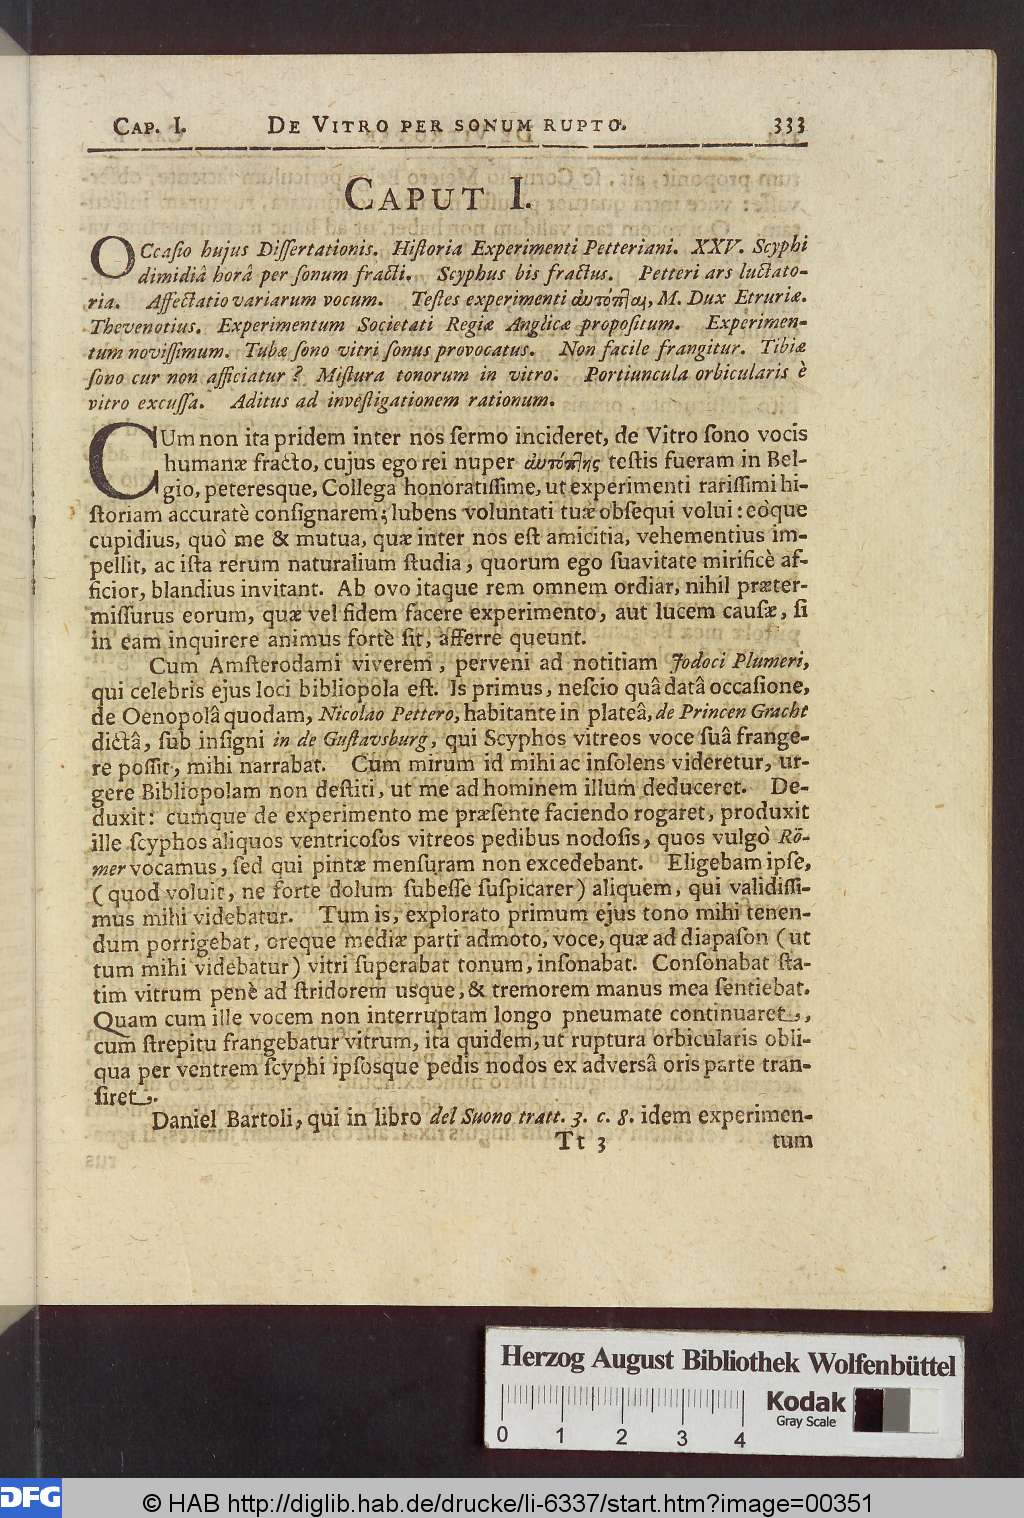 CAP. I. DE VITRO PER SONUM RUPTO. 333
CAPUT I.
OCcaſio hujus Diſſertationis. Hiſtoria Experimenti Petteriani. XXV. Scyphi
dimidiâ horâ per ſonum fracti. Scyphus bis fractus. Petteri ars luctato-
ria. Affectatio variarum vocum. Teſtes experimenti αὐτόπται, M. Dux Etruriæ.
Thevenotius. Experimentum Societati Regiæ Anglicæ propoſitum. Experimen-
tum noviſſimum. Tubæ ſono vitri ſonus provocatus. Non facile frangitur. Tibiæ
ſono cur non afficiatur? Miſtura tonorum in vitro. Portiuncula orbicularis è
vitro excuſſa. Aditus ad inveſtigationem rationum.
CUm non ita pridem inter nos ſermo incideret, de Vitro ſono vocis
humanæ fracto, cujus ego rei nuper αὐτόπτης teſtis fueram in Bel-
gio, peteresque, Collega honoratiſſime, ut experimenti rariſſimi hi-
ſtoriam accuratè conſignarem; lubens voluntati tuæ obſequi volui: eòque
cupidius, quò me & mutua, quæ inter nos eſt amicitia, vehementius im-
pellit, ac iſta rerum naturalium ſtudia, quorum ego ſuavitate mirificè af-
ficior, blandius invitant. Ab ovo itaque rem omnem ordiar, nihil præter-
miſſurus eorum, quæ vel fidem facere experimento, aut lucem cauſæ, ſi
in eam inquirere animus fortè ſit, afferre queunt.
Cum Amſterodami viverem, perveni ad notitiam Jodoci Plumeri,
qui celebris ejus loci bibliopola eſt. Is primus, neſcio quâ datâ occaſione,
de Oenopolâ quodam, Nicolao Pettero, habitante in plateâ, de Princen Gracht
dictâ, ſub inſigni in de Guſtavsburg, qui Scyphos vitreos voce ſuâ frange-
re poſſit, mihi narrabat. Cum mirum id mihi ac inſolens videretur, ur-
gere Bibliopolam non deſtiti, ut me ad hominem illum deduceret. De-
duxit: cumque de experimento me præſente faciendo rogaret, produxit
ille ſcyphos aliquos ventricoſos vitreos pedibus nodoſis, quos vulgò Rö-
mer vocamus, ſed qui pintæ menſuram non excedebant. Eligebam ipſe,
(quod voluit, ne forte dolum ſubeſſe ſuſpicarer) aliquem, qui validiſſi-
mus mihi videbatur. Tum is, explorato primum ejus tono mihi tenen-
dum porrigebat, oreque mediæ parti admoto, voce, quæ ad diapaſon (ut
tum mihi videbatur) vitri ſuperabat tonum, inſonabat. Conſonabat ſta-
tim vitrum penè ad ſtridorem usque, & tremorem manus mea ſentiebat.
Quam cum ille vocem non interruptam longo pneumate continuaret,
cum ſtrepitu frangebatur vitrum, ita quidem, ut ruptura orbicularis obli-
qua per ventrem ſcyphi ipſosque pedis nodos ex adversâ oris parte tran-
ſiret.
Daniel Bartoli, qui in libro del Suono tratt. 3. c. 8. idem experimen-
Tt 3 tum
Herzog August Bibliothek Wolfenbüttel
0 1 2 3 4
Kodak
Gray Scale
DFG
© HAB http://diglib.hab.de/drucke/li-6337/start.htm?image=00351